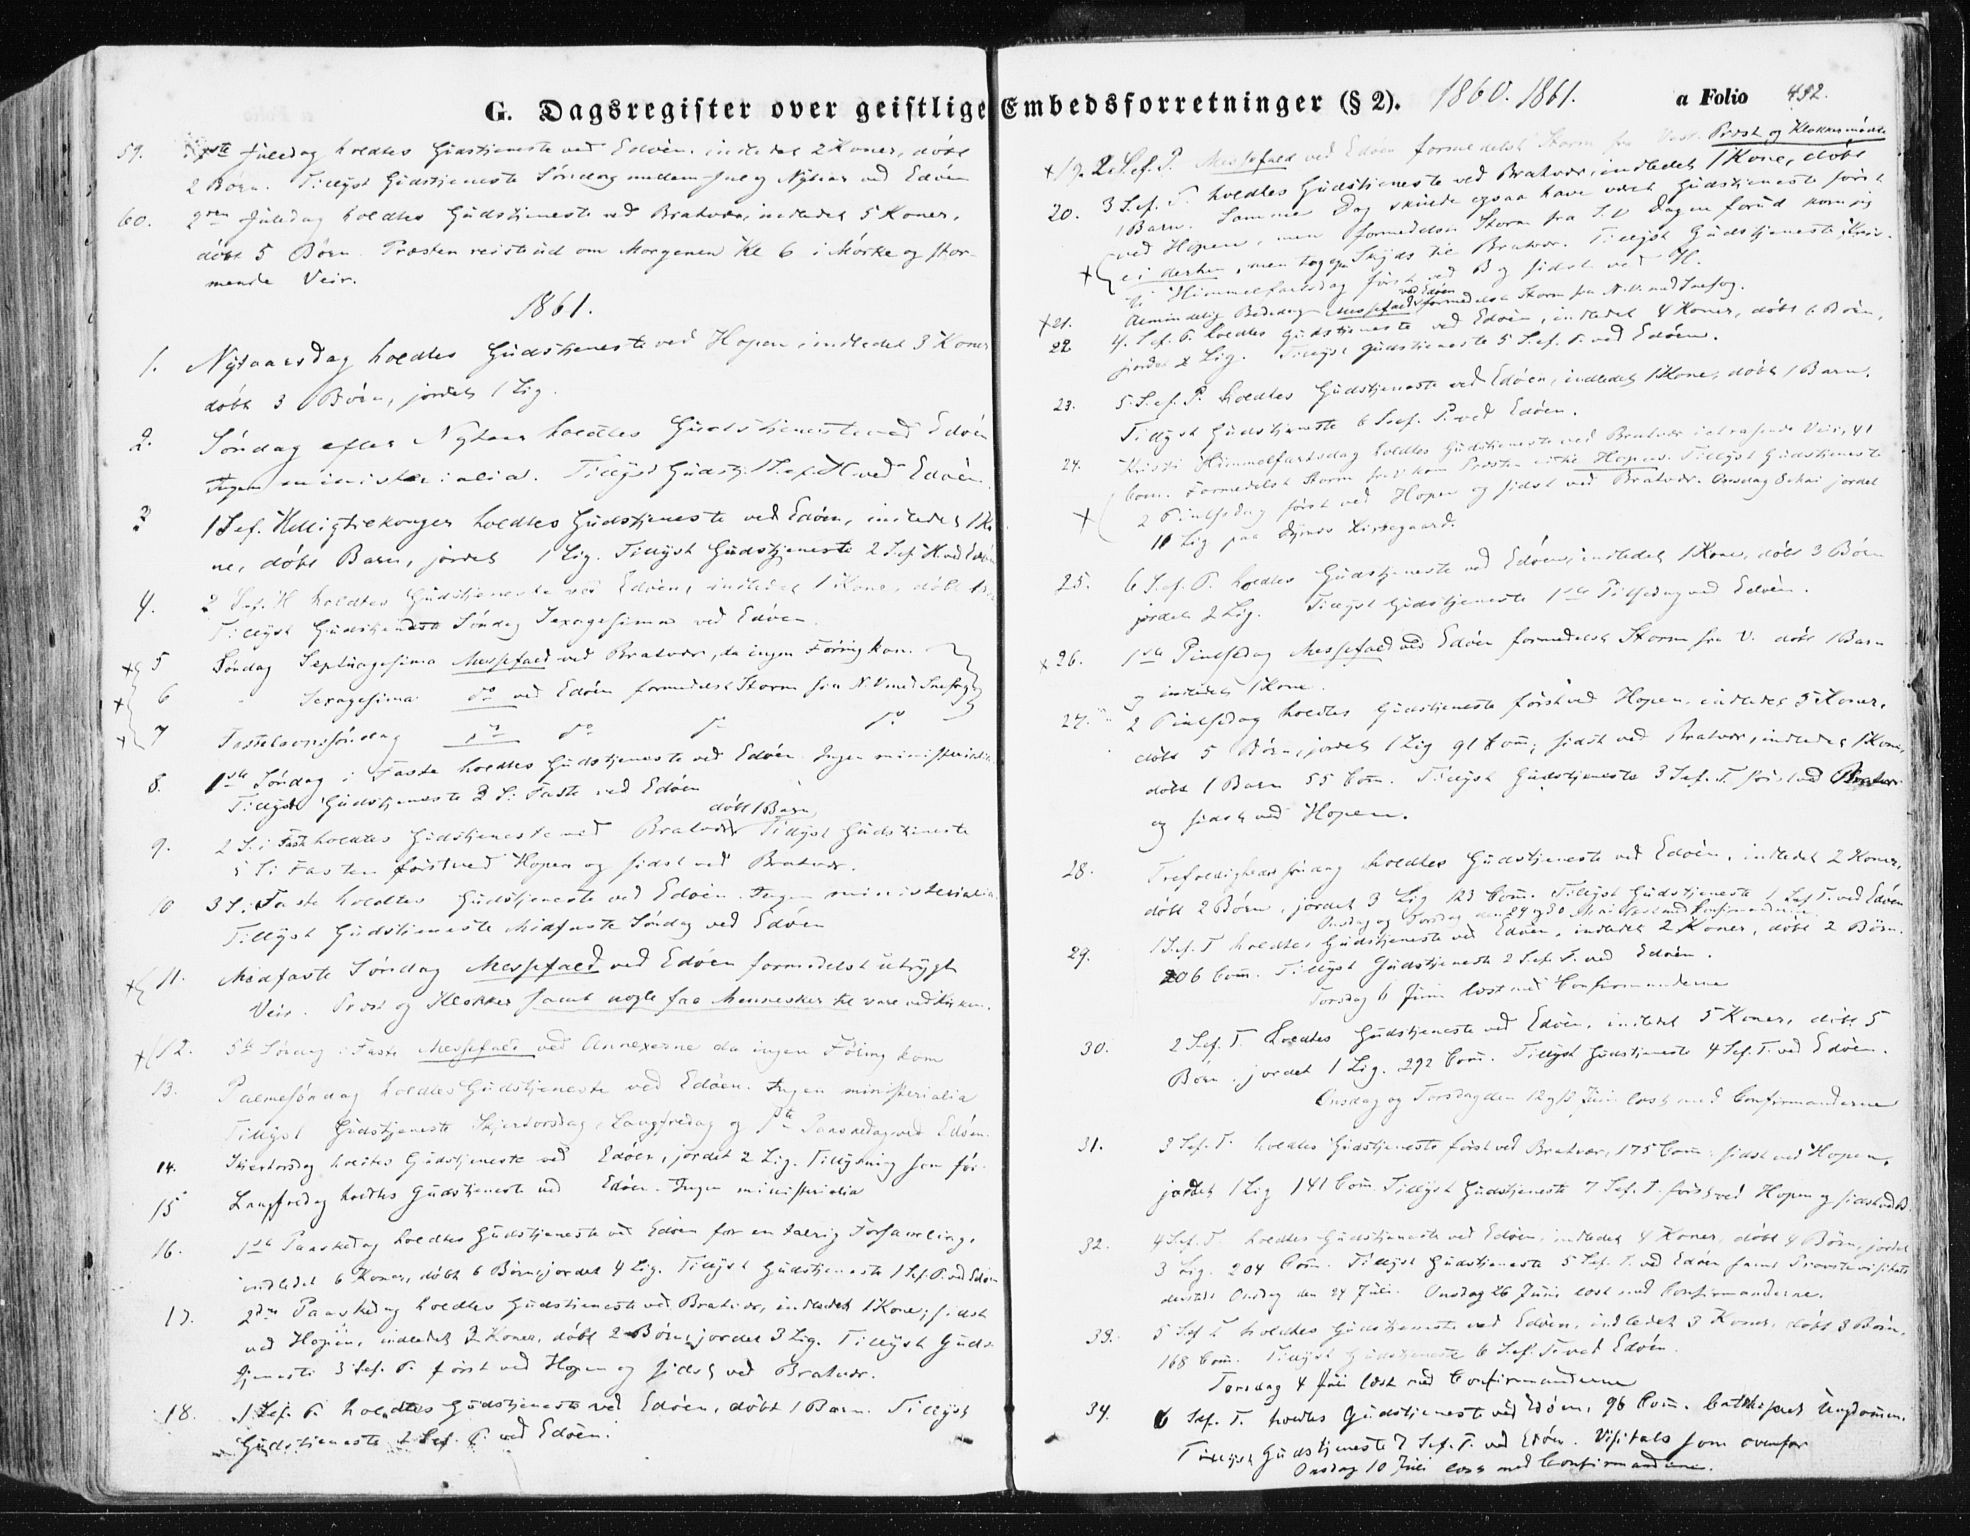 G. Dagsregister over geistlige Embedsforretninger (§ 2). 1860. 1861. a Folio 492.
59. 1ste Juledag holdtes Gudstjeneste ved Edøen. indledet 2 Koner, døbt
2 Børn. Tillyst Gudstjeneste Søndag mellem Jul og Nytaar ved Edøen
60. 2den Juledag holdtes Gudstjeneste ved Bratvær, indledet 5 Koner,
døbt 5 Børn. Præsten reiste ud om Morgenen Kl 6 i Mørke og stor-
mende Veir.
1861.
1. Nytaarsdag holdtes Gudstjeneste ved Hopen, indledet 3 Koner
døbt 3 Børn, jordet 1 Lig.
2. Søndag efter Nytaar holdtes Gudstjeneste ved Edøen
Ingen ministerialia. Tillyst Gudstj. 1 S. ef. H ved Edøen.
3 1 S. ef. Helligtrekonger holdtes Gudstjeneste ved Edøen, indledet 1 Ko-
ne, døbt Barn, jordet 1 Lig. Tillyst Gudstjeneste 2 S. ef. H ved Edøen
4. 2 S. ef. H holdtes Gudstjeneste ved Edøen, indledet 1 Kone, døbt 1
Tillyst Gudstjeneste Søndag Sexagesima ved Edøen.
5 Søndag Septuagesima Messefald ved Bratvær, da ingen Føring kom.
6 " Sexagesima do ved Edøen formedelst Storm fra N.V. med Snefog
7 Fastelavnssøndag do do do do
8. 1ste Søndag i Faste holdtes Gudstjeneste ved Edøen. Ingen ministerialia
Tillyst Gudstjeneste 3 S. i Faste ved Edøen
døbt 1 Barn
9. 2 S. i Faste holdtes Gudstjeneste ved Bratvær Tillyst Gudstjeneste
5 S. i Fasten først ved Hopen og sidst ved Bratvær.
10 3 S. i Faste holdtes Gudstjeneste ved Edøen. Ingen ministerialia
Tillyst Gudstjeneste Midfaste Søndag ved Edøen
11. Midfaste Søndag Messefald ved Edøen formedelst utrygt
Veir. Præst og Klokker samt nogle faa Mennesker til vare ved Kirken.
12. 5te Søndag i Faste Messefald ved Annexerne da ingen Føring kom
13. Palmesøndag holdtes Gudstjeneste ved Edøen. Ingen ministerialia
Tillyst Gudstjeneste Skjertorsdag, Langfredag og 1ste Paaskedag ved Edøen.
14. Skjertorsdag holdtes Gudstjeneste ved Edøen, jordet 2 Lig. Tillysning som før.
15 Langfredag holdtes Gudstjeneste ved Edøen. Ingen ministerialia
16. 1ste Paaskedag holdtes Gudstjeneste ved Edøen for en talrig Forsamling.
indledet 6 Koner, døbt 6 Børn, jordet 4 Lig. Tillyst Gudstjeneste 1 S. ef. P. ved Edøen
17. 2den Paaskedag holdtes Gudstjeneste ved Bratvær, indledet 1 Kone; sidst
ved Hopen, indledet 2 Koner, døbt 2 Børn, jordet 3 Lig. Tillyst Guds-
tjeneste 3 S. ef. P. først ved Hopen og sidst ved Bratvær.
18. 1 S. ef. P. holdtes Gudstjeneste ved Edøen, døbt 1 Barn. Tillyst
Gudstjeneste 2 S. ef. P. ved Edøen.
19. 2. S. ef. P. Messefald ved Edøen formedelst Storm fra Vest. Præst og Klokker mødte
20. 3 S. ef. P. holdtes Gudstjeneste ved Bratvær, indledet 1 Kone, døbt
1 Barn. Samme Dag skulde ogsaa have været Gudstjeneste først
ved Hopen, men formedelst Storm fra S.V Dagen forud kom jeg
ei derhen, men tog op Skyds til Bratvær. Tillyst Gudstjeneste Kris-
ti Himmelfartsdag først ved B og sidst ved H.
21. Almindelig Bededag Messefald ved Edøen formedelst Storm fra N.V. med Snefog.
22 4. S. ef. P. holdtes Gudstjeneste ved Edøen, indledet 4 Koner, døbt 6 Børn,
jordet 2 Lig. Tillyst Gudstjeneste 5 S. ef. P. ved Edøen.
23. 5. S. ef. P. holdtes Gudstjeneste ved Edøen, indledet 1 Kone, døbt 1 Barn.
Tillyst Gudstjeneste 6 S. ef. P. ved Edøen.
24. Kristi Himmelfartsdag holdtes Gudstjeneste ved Bratvær i et rasende Veir, 41
Com. Formedelst Storm kom Præsten ei til Hopen. Tillyst Gudstjeneste
2 Pintsedag først ved Hopen og sidst ved Bratvær. Onsdag 8 Mai jordet
11 Lig paa Kirkegaard.
25. 6 S. ef. P. holdtes Gudstjeneste ved Edøen, indledet 1 Kone, døbt 3 Børn
jordet 2 Lig. Tillyst Gudstjeneste 1ste Pintsedag ved Edøen.
26. 1ste Pintsedag Messefald ved Edøen formedelst Storm fra V. døbt 1 Barn
og indledet 1 Kone.
27. 2 Pintsedag holdtes Gudstjeneste først ved Hopen, indledet 5 Koner,
døbt 5 Børn, jordet 1 Lig 91 Com; sidst ved Bratvær, indledet 1 Kone,
døbt 1 Barn 55 Com. Tillyst Gudstjeneste 3 S. ef. T. først ved Bratvær
og sidst ved Hopen.
28. Trefoldighedssøndag holdtes Gudstjeneste ved Edøen, indledet 2 Koner,
døbt 2 Børn, jordet 3 Lig 123 Com. Tillyst Gudstjeneste 1 S. ef. T. ved Edøen
Onsdag og Torsdag den 29 og 30 Mai læst med Confirmanderne.
29. 1 S. ef. T holdtes Gudstjeneste ved Edøen, indledet 2 Koner, døbt 2 Børn.
206 Com. Tillyst Gudstjeneste 2 S. ef. T. ved Edøen.
Torsdag 6 Juni læst med Confirmanderne
30. 2 S. ef. T. holdtes Gudstjeneste ved Edøen, indledet 5 Koner, døbt 5
Børn, jordet 1 Lig. 292 Com. Tillyst Gudstjeneste 4 S. ef. T. ved Edøen.
Onsdag og Torsdag den 12 og 13 Juni læst med Confirmanderne
31. 3 S. ef. T. holdtes Gudstjeneste først ved Bratvær, 175 Com: sidst ved Hopen,
jordet 1 Lig 141 Com. Tillyst Gudstjeneste 7 S. ef. T. først ved Hopen og sidst ved B.
32. 4 S. ef. T. holdtes Gudstjeneste ved Edøen, indledet 4 Koner, døbt 4 Børn, jordet
3 Lig. 204 Com. Tillyst Gudstjeneste 5 S. ef. T. ved Edøen samt Provstevisitats
dersteds Onsdag den 24 Juli. Onsdag 26 Juni læst med Confirmanderne.
33. 5 S. ef. T. holdtes Gudstjeneste ved Edøen, indledet 3 Koner, døbt 3 Børn,
168 Com. Tillyst Gudstjeneste 6 S. ef. T. ved Edøen.
Torsdag 4 Juli læst med Confirmanderne
34. 6 S. ef. T. holdtes Gudstjeneste ved Edøen, 96 Com. Catekiseret Ungdommen.
Tillyst Gudstjeneste 7 S. ef. T. ved Edøen. Visitats som ovenfor
Onsdag 10 Juli læst med Confirmanderne.